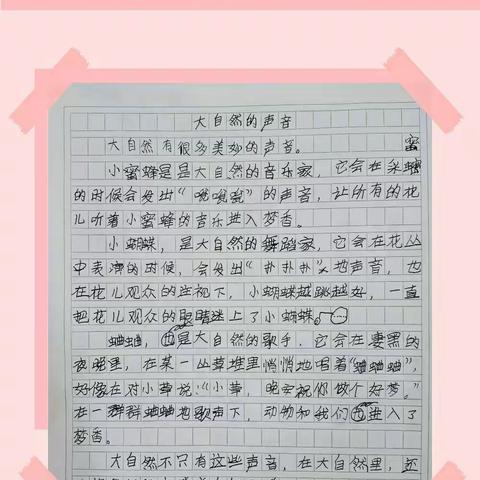 大自然的声音
大自然有很多美妙的声音。 蜜
小蜜蜂是大自然的音乐家，它会在采
的时候会发出“嗡嗡嗡”的声音，让所有的花
儿听着小蜜蜂的音乐进入梦香。
小蝴蝶，是大自然的舞蹈家，它会在花丛
中表演的时候，会发出“扑扑扑”地声音，也
在花儿观众的注视下，小蝴蝶越跳越好，一直
把花儿观众的眼睛迷上了小蝴蝶。
蛐蛐，也是大自然的歌手，它会在妻黑的
夜晚里，在某一丛草堆里悄悄地唱着“蛐蛐蛐”，
好像在对小草说：“小草，晚安祝你做个好梦。”
在一群群蛐蛐地歌声下，动物和我们也进入了
梦香。
大自然不只有这些声音，在大自然里，还